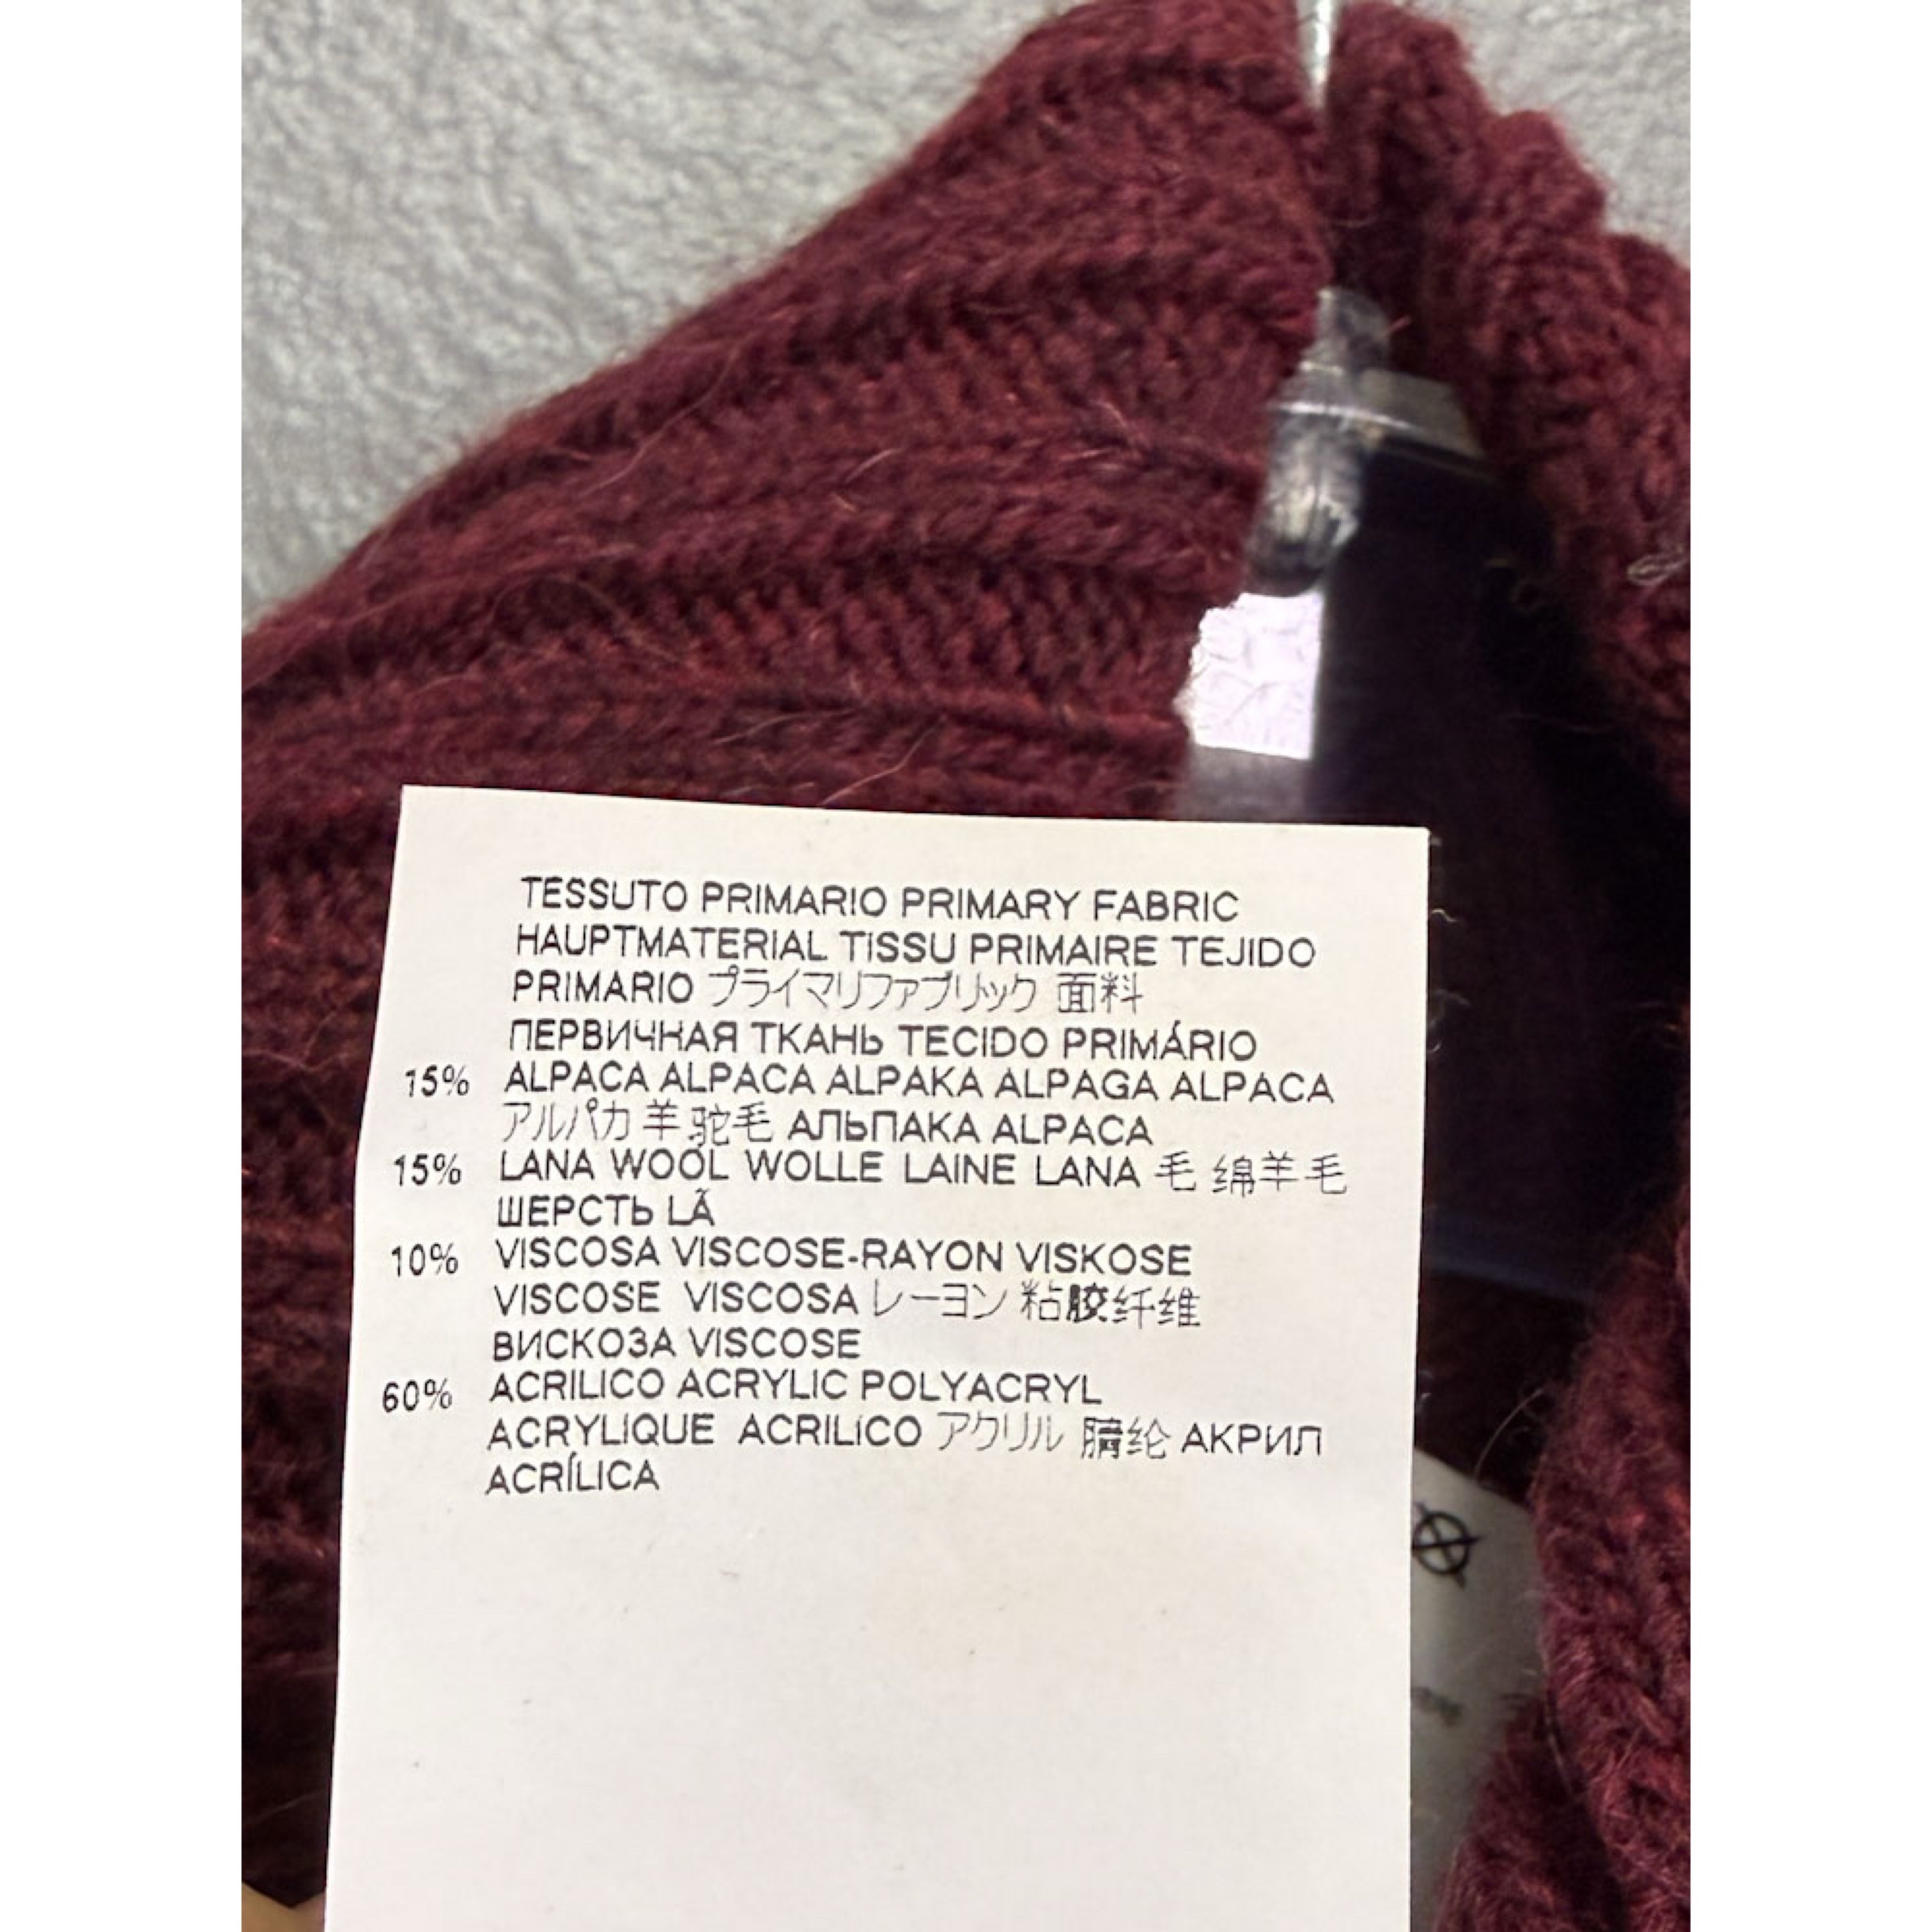 TESSUTO PRIMARIO PRIMARY FABRIC
HAUPTMATERIAL TISSU PRIMAIRE TEJIDO
PRIMARIO プライマリファブリック 面料
ПЕРВИЧНАЯ ТКАНЬ TECIDO PRIMÁRIO
15% ALPACA ALPACA ALPAKA ALPAGA ALPACA
アルパカ 羊驼毛 АЛЬПАКА ALPACA
15% LANA WOOL WOLLE LAINE LANA 毛 绵羊毛
ШЕРСТЬ LÃ
10% VISCOSA VISCOSE-RAYON VISKOSE
VISCOSE VISCOSA レーヨン 粘胶纤维
ВИСКОЗА VISCOSE
60% ACRILICO ACRYLIC POLYACRYL
ACRYLIQUE ACRILICO アクリル 腈纶 АКРИЛ
ACRÍLICA